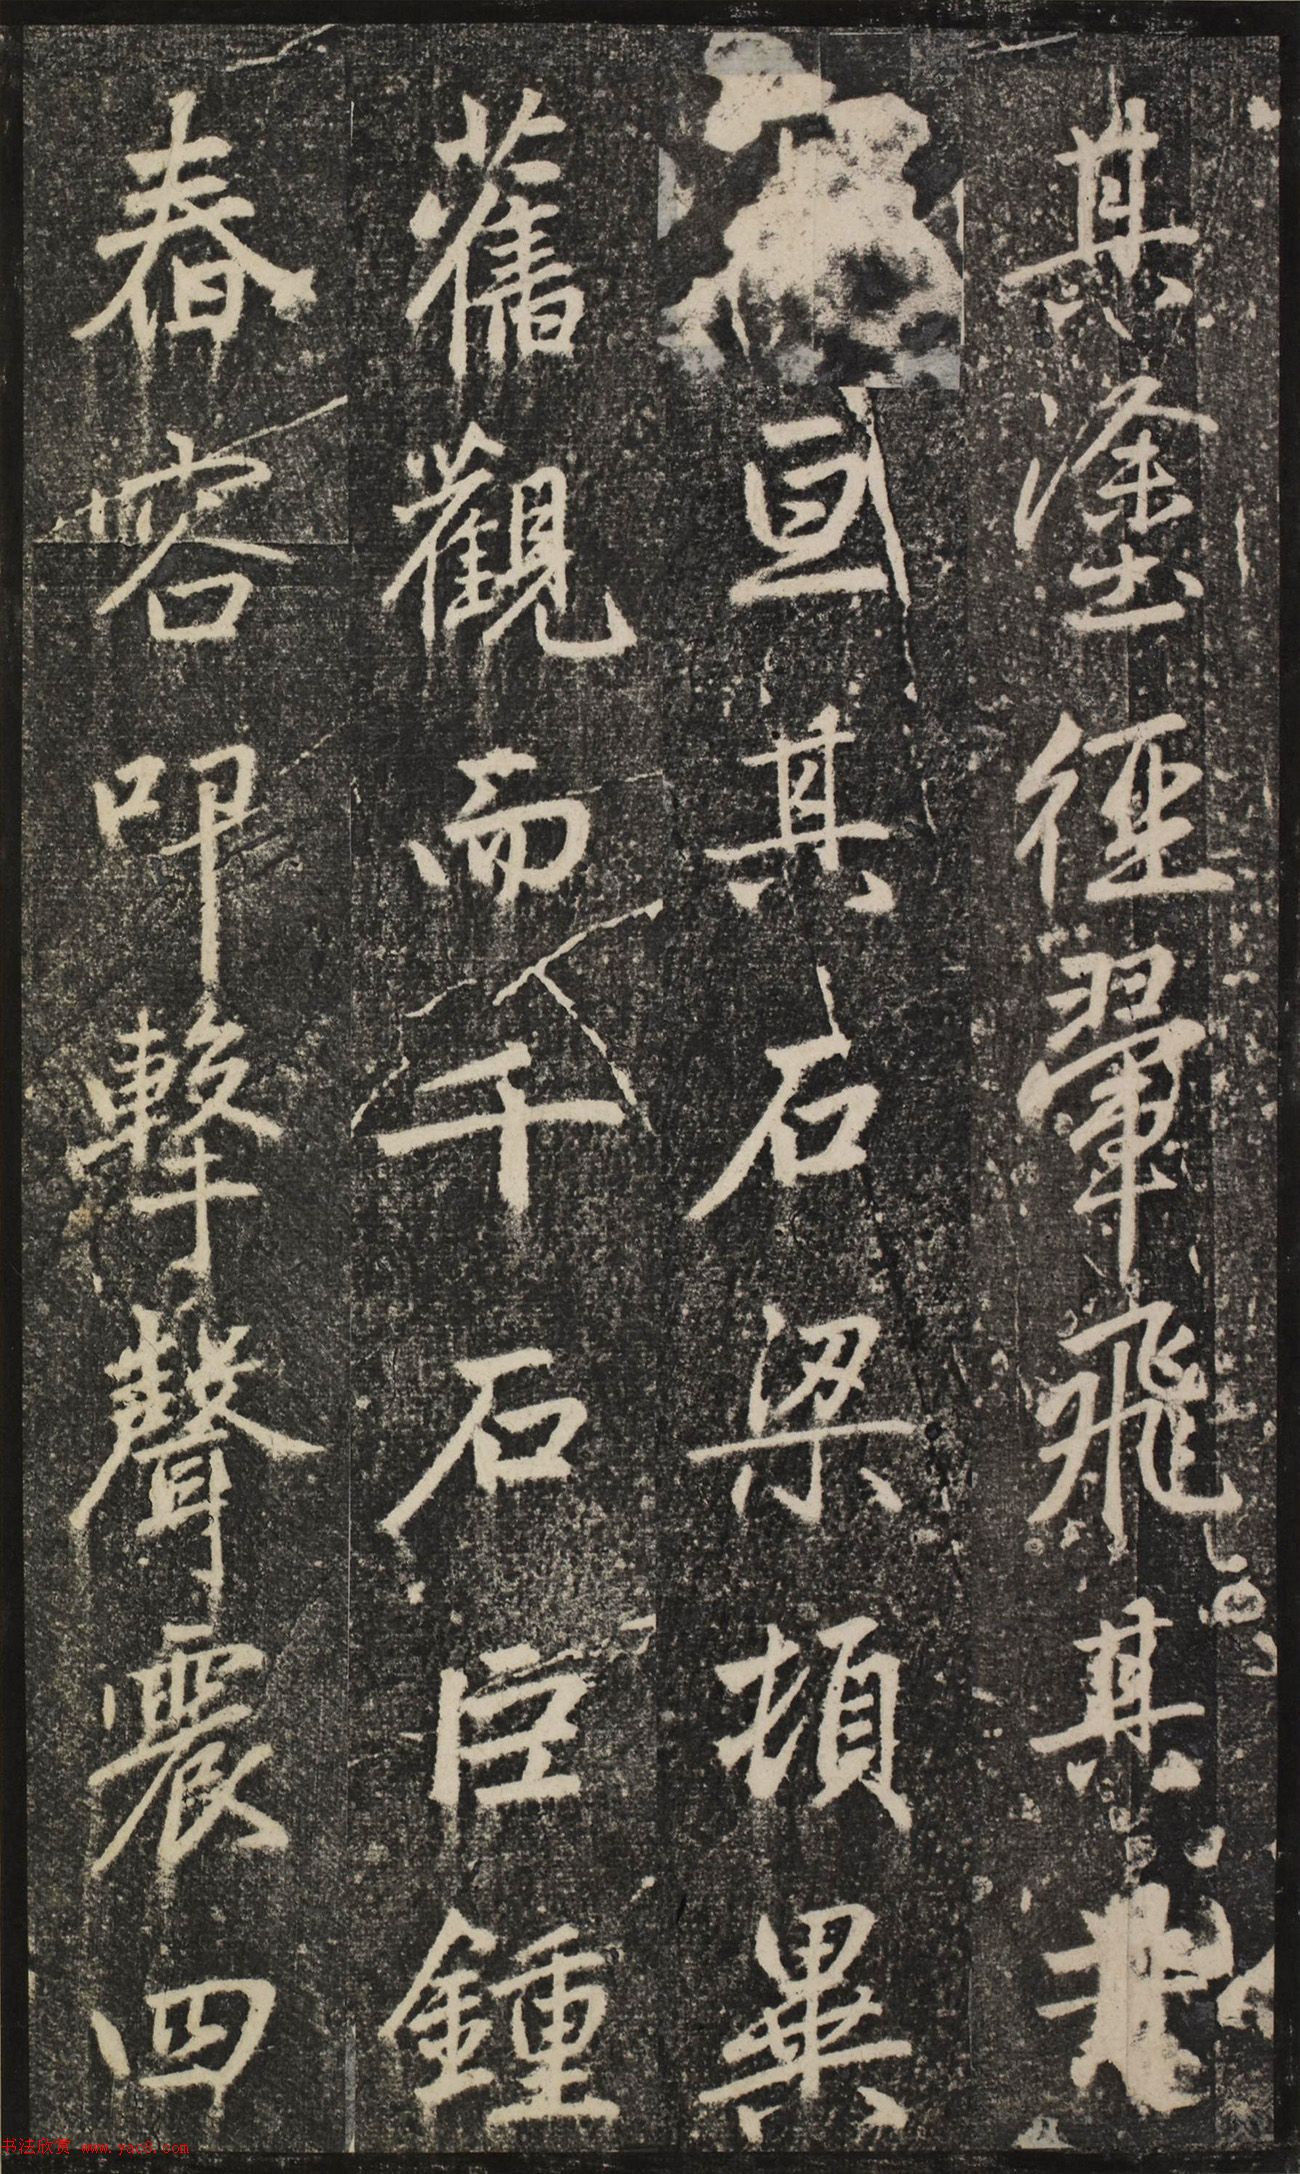 其塗徑翬飛其
亘其石梁頓異
舊觀而千石巨鍾
舂容叩擊聲震四
书法欣赏 www.yac8.com